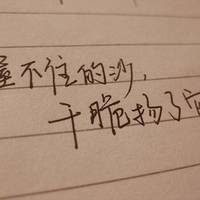 握不住的沙，
干脆扬了它